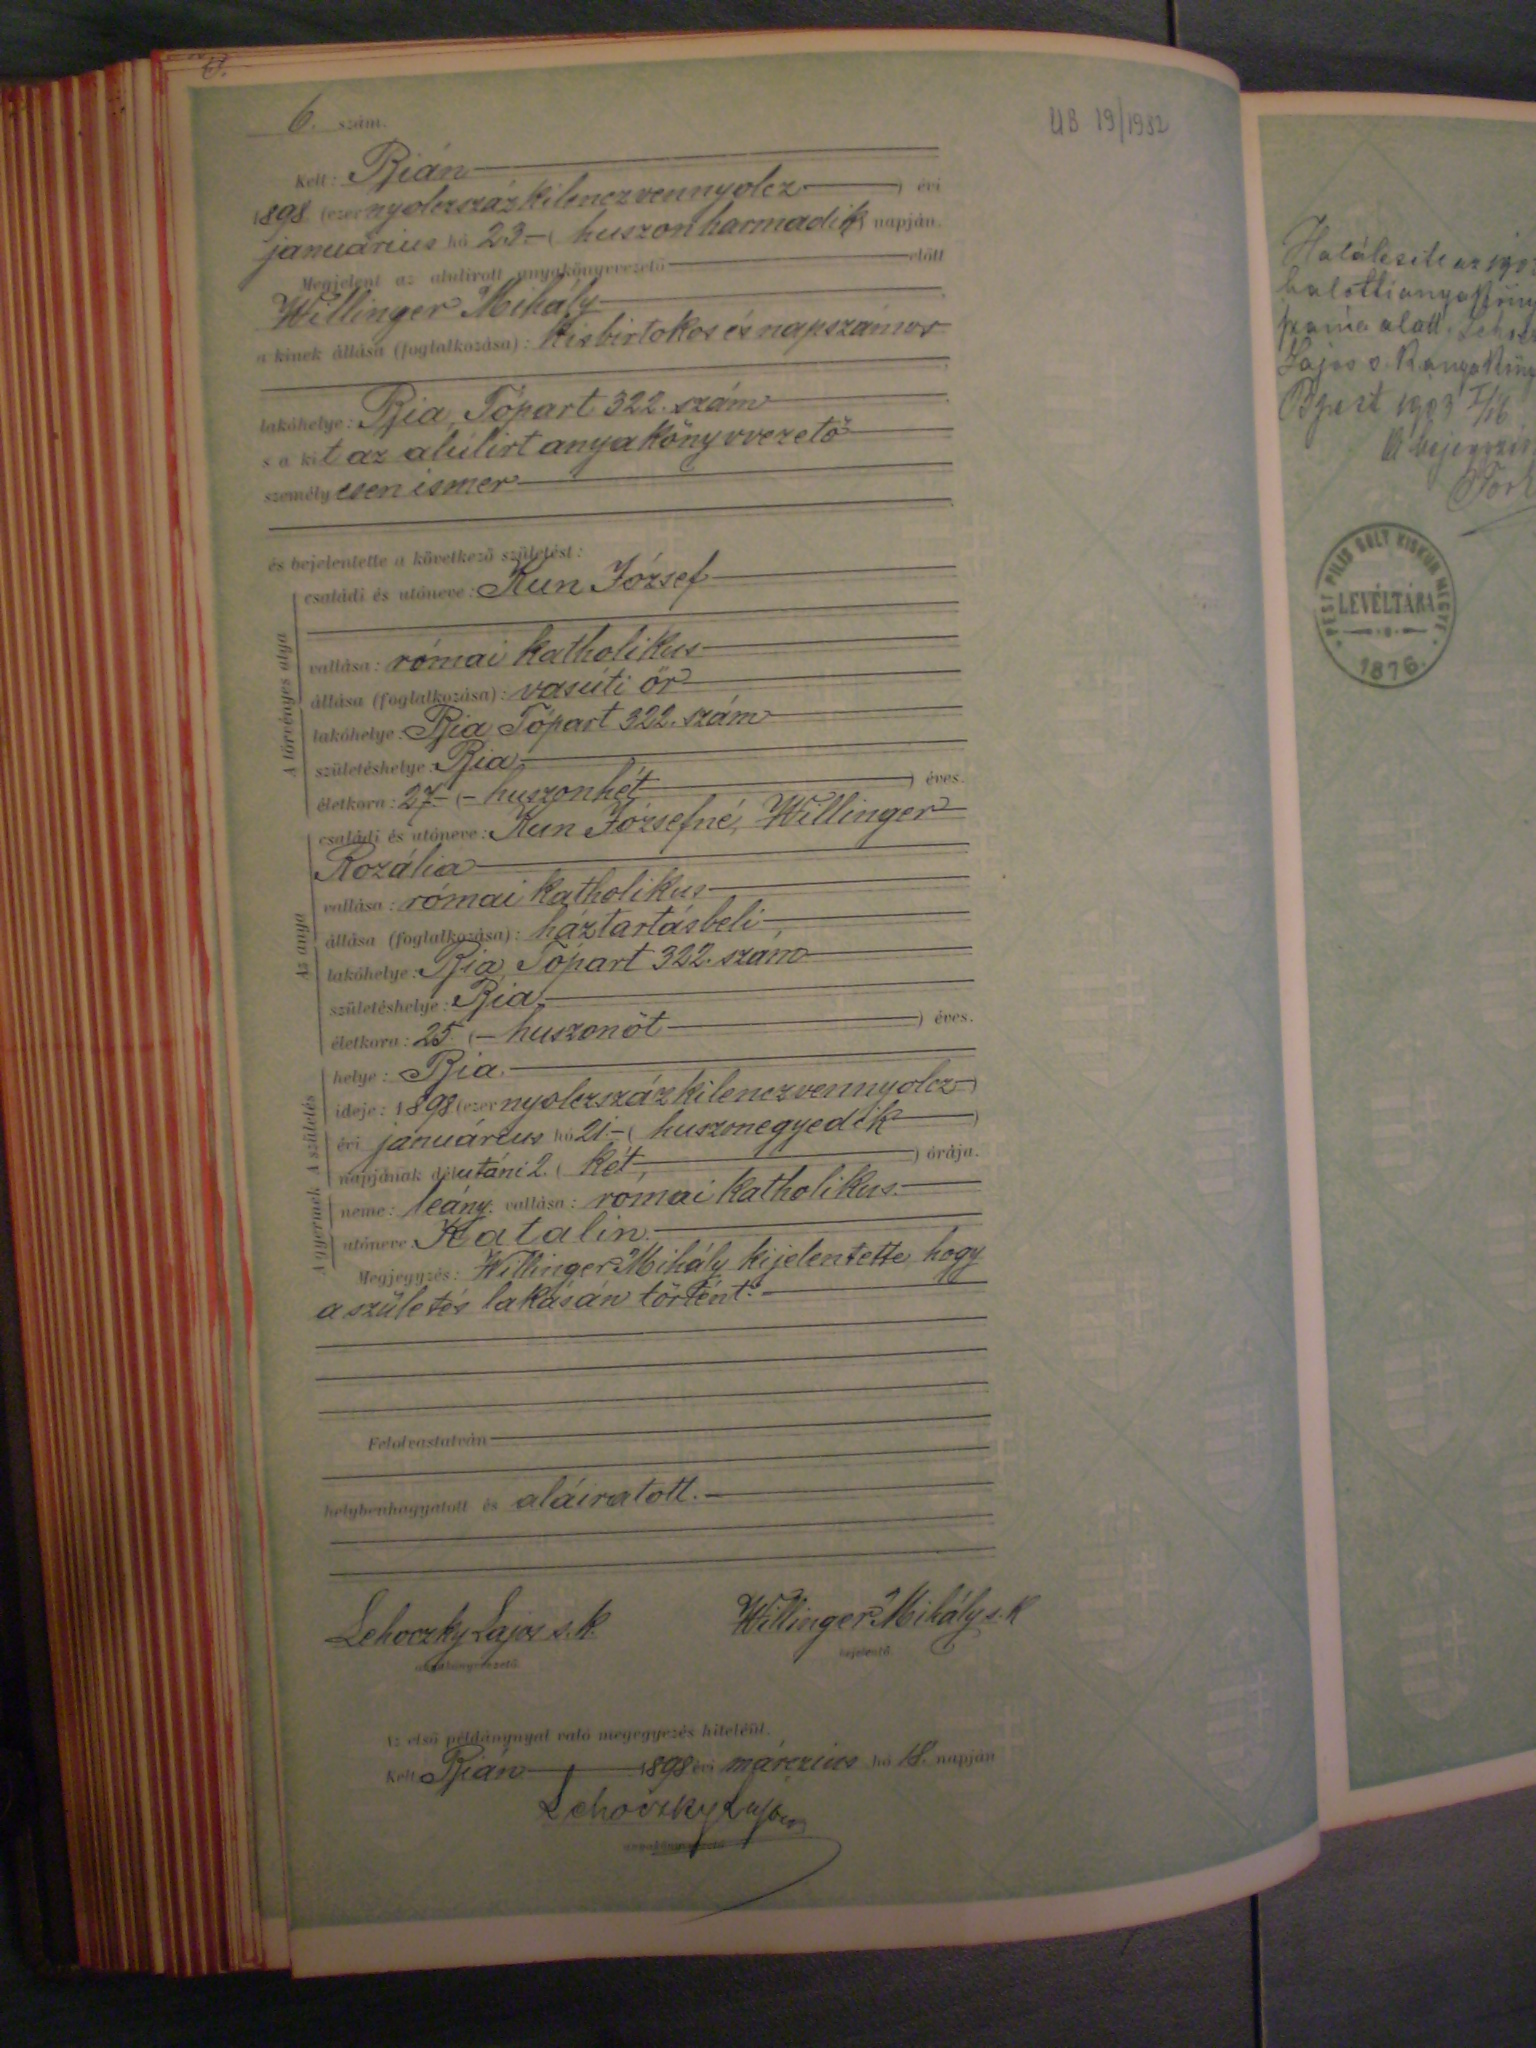 6. szám.
UB 19/1982
Kelt: Bián
1898 (ezernyolczszázkilenczvennyolcz) évi
januárius hó 23 (huszonharmadik) napján.
Megjelent az alulirott anyakönyvvezető előtt
Willinger Mihály
a kinek állása (foglalkozása): kisbirtokos és napszámos
lakóhelye: Bia, Tópart 322. szám
s a kit az alúlirt anyakönyvvezető
személyesen ismer
és bejelentette a következő születést:
A törvényes atya
családi és utóneve: Kun József
vallása: római katholikus
állása (foglalkozása): vasúti őr
lakóhelye: Bia Tópart 322. szám
születéshelye: Bia
életkora: 27 (huszonhét) éves.
Az anya
családi és utóneve: Kun Józsefné, Willinger
Rozália
vallása: római katholikus
állása (foglalkozása): háztartásbeli
lakóhelye: Bia, Tópart 322. szám
születéshelye: Bia
életkora: 25 (huszonöt) éves.
A születés
helye: Bia.
ideje: 1898 (ezernyolczszázkilenczvennyolcz)
évi januárius hó 21 (huszonegyedik)
napjának délutáni 2. (két) órája.
A gyermek
neme: leány. vallása: római katholikus.
utóneve: Katalin.
Megjegyzés: Willinger Mihály kijelentette, hogy
a születés lakásán történt.
Felolvastatván
helybenhagyatott és aláiratott.
Lehoczky Lajos s.k.
anyakönyvvezető
Willinger Mihály s.k
bejelentő
Az első példánynyal való megegyezés hiteléül.
Kelt Bián 1898 évi márczius hó 18. napján
Lehoczky Lajos
anyakönyvvezető
Halálesete az
halotti
alatt
Lajos s.k.
Bpest 1903 I/16
A bejegyzés
PEST PILIS SOLT KISKUN MEGYE
LEVÉLTÁRA
1876.